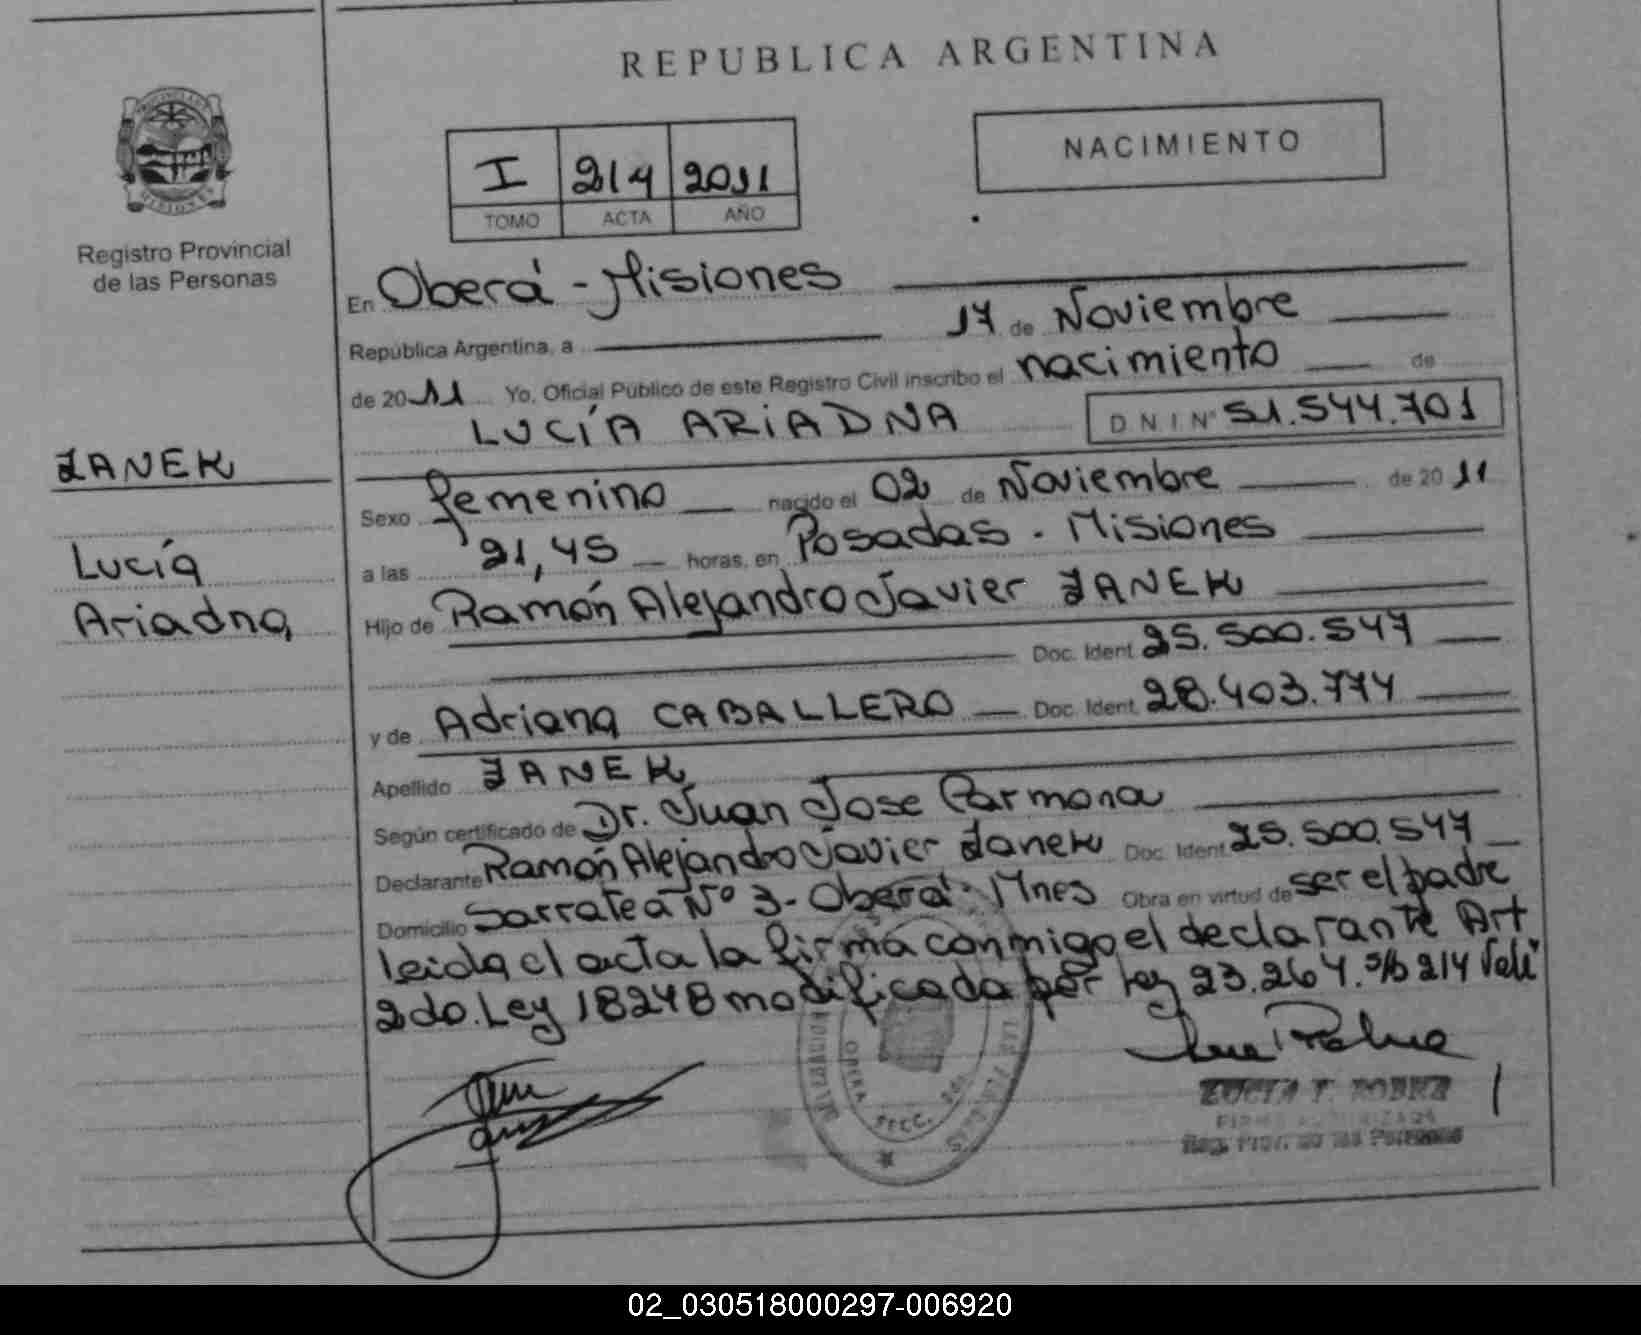 REPUBLICA ARGENTINA
NACIMIENTO
I 214 2011
TOMO ACTA AÑO
Registro Provincial
de las Personas
En Oberá - Misiones
República Argentina, a 17 de Noviembre
de 2011 Yo, Oficial Público de este Registro Civil inscribo el nacimiento de
LUCÍA ARIADNA DNI Nº 51.544.701
ZANEK
Lucía
Ariadna
Sexo femenino nacido el 02 de Noviembre de 2011
a las 21,45 horas, en Posadas - Misiones
Hijo de Ramón Alejandro Javier ZANEK
Doc. Ident. 25.500.547
y de Adriana CABALLERO Doc. Ident. 28.403.774
Apellido ZANEK
Según certificado de Dr. Juan Jose Carmona
Declarante Ramón Alejandro Javier Zanek Doc. Ident. 25.500.547
Domicilio Sarratea Nº 3 - Oberá - Mnes Obra en virtud de ser el padre
leida el acta la firma conmigo el declarante Art
2do. Ley 18248 modificada por ley 23.264. s/b 214 Vale
OBERA SECC.
Reg. Prov. de las Personas
02_030518000297-006920